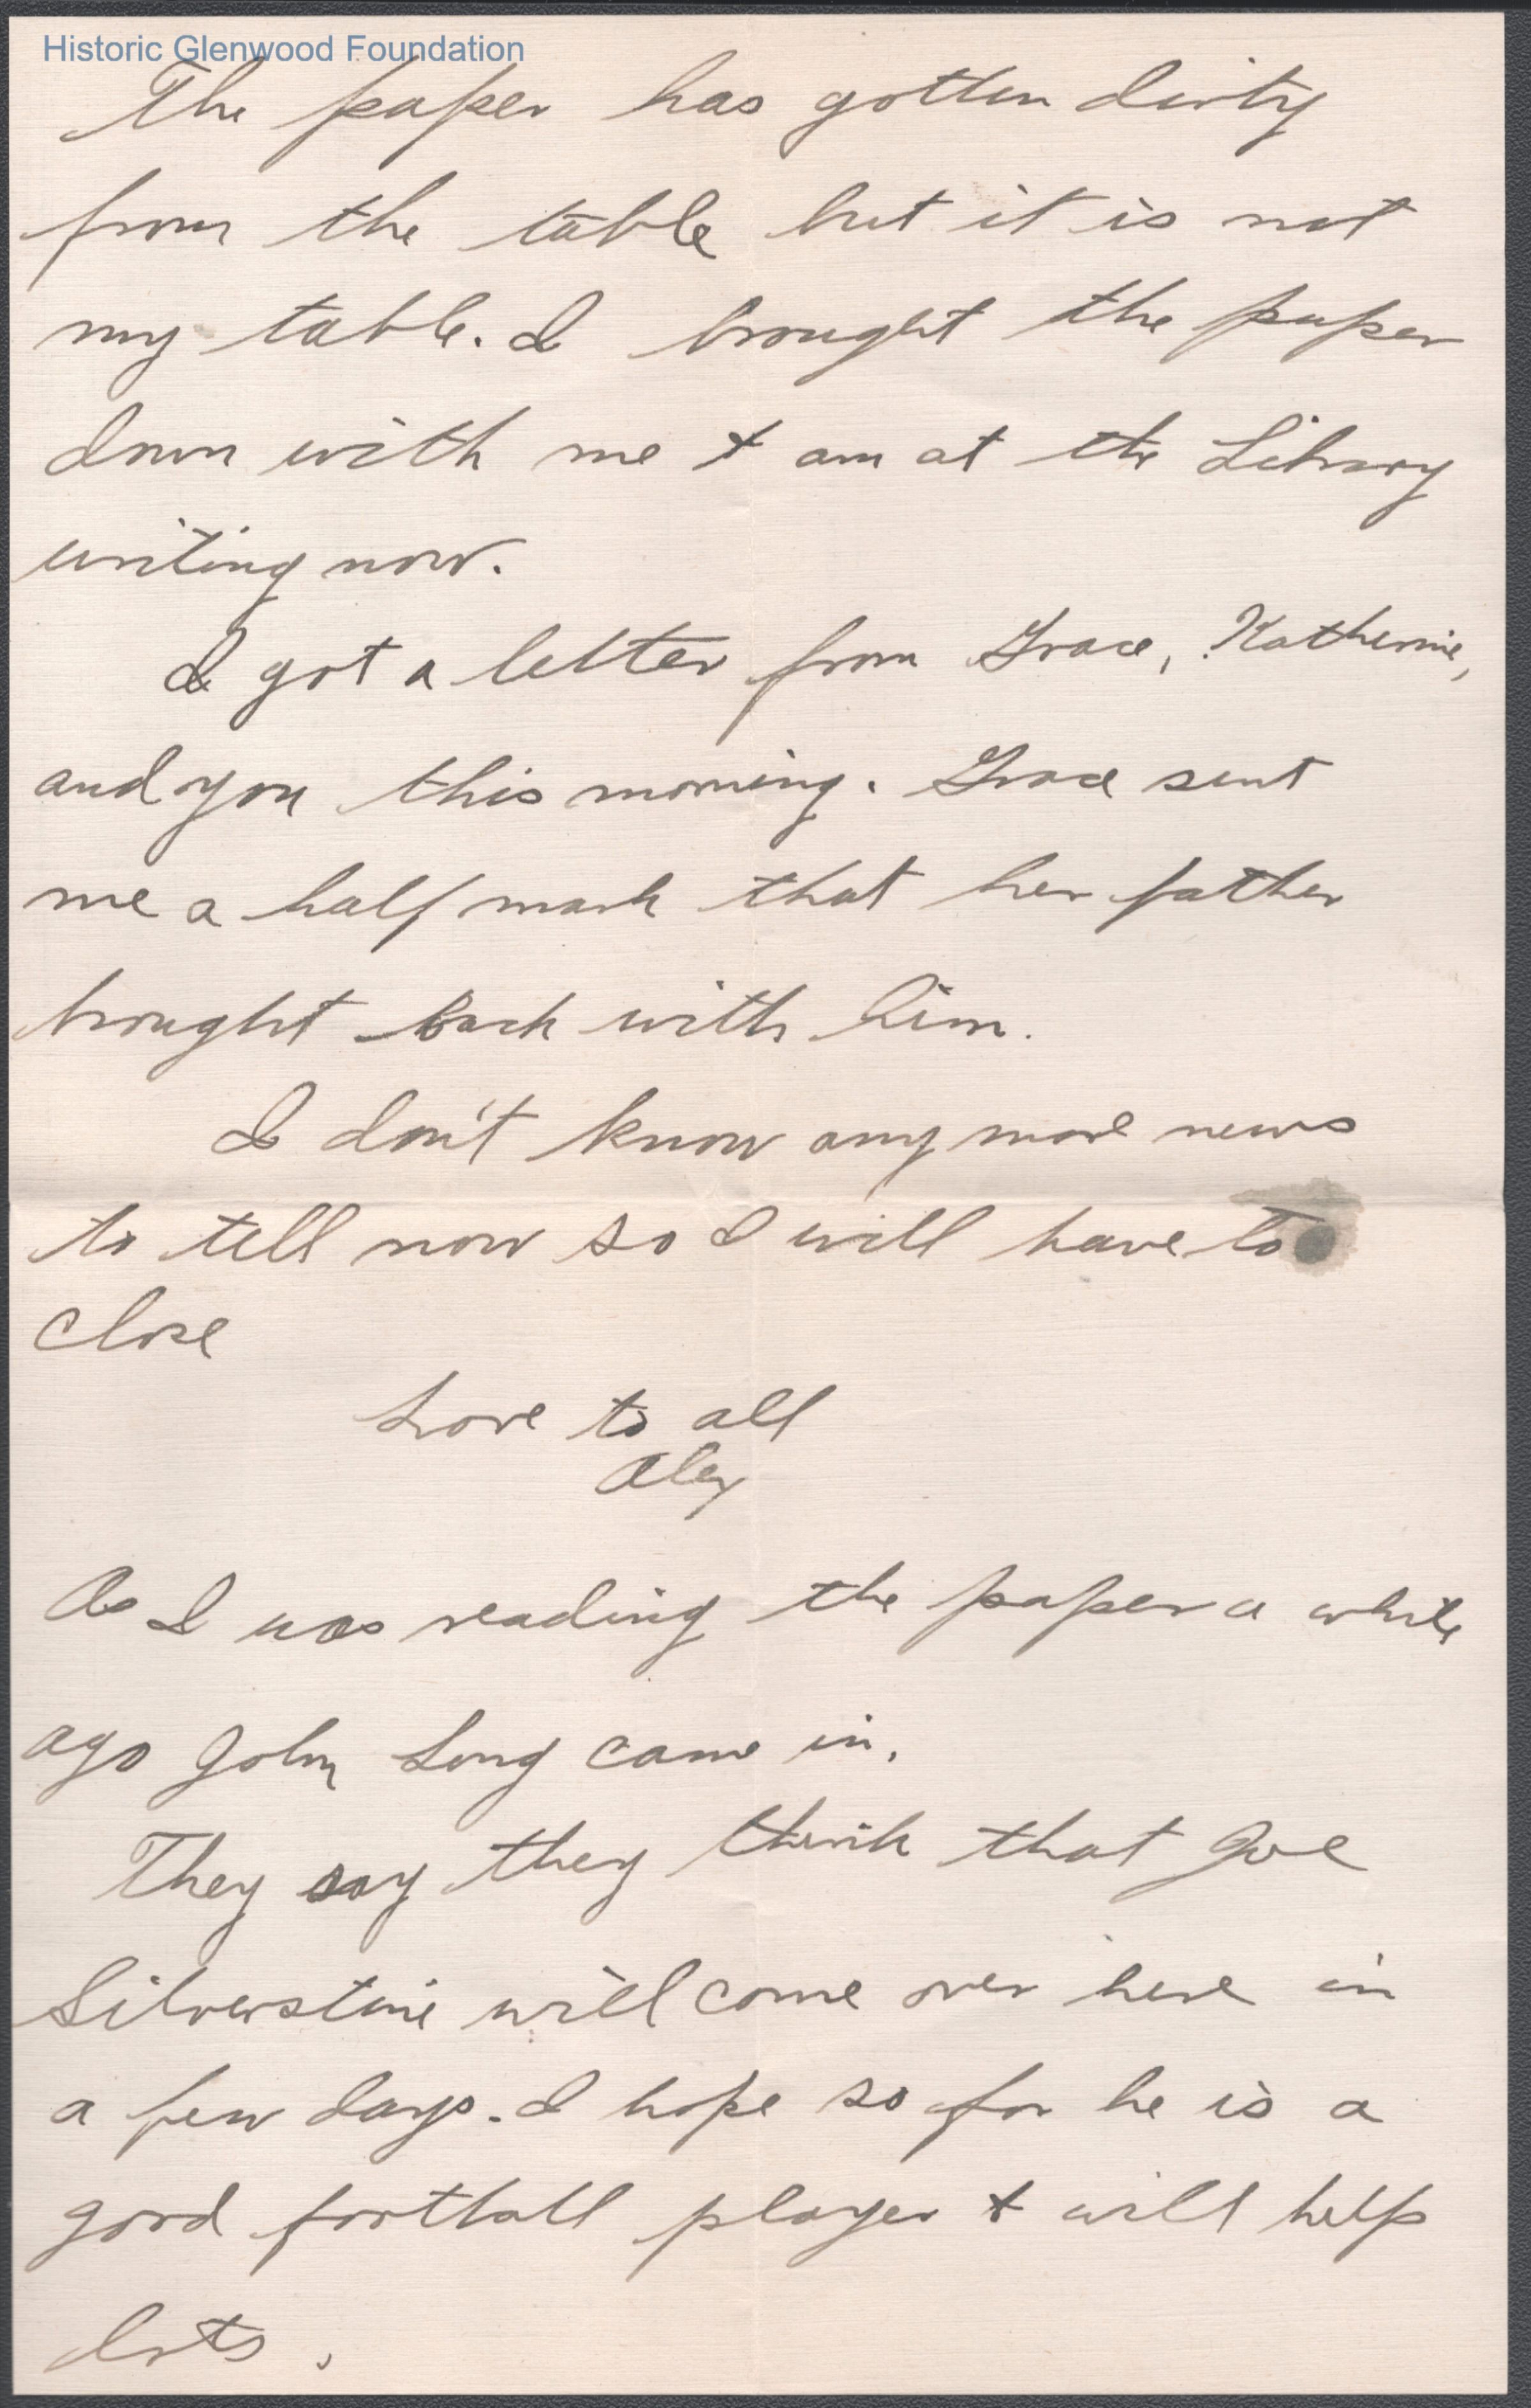 Historic Glenwood Foundation
The paper has gotten dirty
from the table but it is not
my table. I brought the paper
down with me + am at the Library
writing now.
I got a letter from Grace, Katherine,
and you this morning. Grace sent
me a half mark that her father
brought back with him.
I don't know any more news
to tell now so I will have to
close
Love to all
Alex
As I was reading the paper a while
ago John Long came in.
They say they think that Joe
Silverstine will come over here in
a few days. I hope so for he is a
good football player + will help
lots.